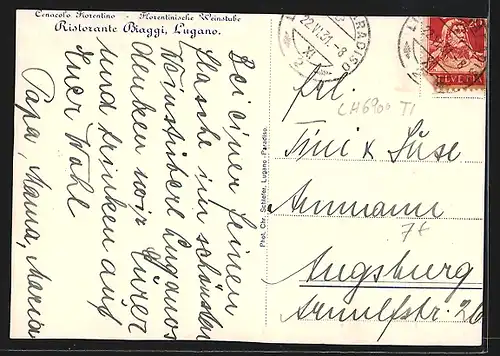 Cenacolo Fiorentino - Florentinische Weinstube
Ristorante Biaggi, Lugano.
Bei einer feinen
Flasche im schönsten
Weinstüberl Luganos
denken wir Eurer
und trinken auf
Euer Wohl
Papa, Mama, Maria
Phot. Chr. Schiefer, Lugano-Paradiso.
PARADISO
22.VI.31. - 8
XI
2
HELVETIA
20
Frl.
CH6900 TI
Tini & Suse
Ammann
7f
Augsburg
Arnulfstr. 26